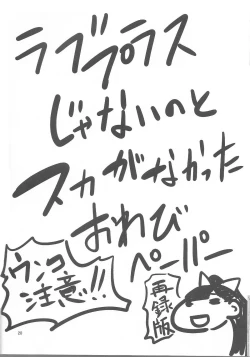 ラブプラス
じゃないのと
スカがなかった
おわび
ペーパー
ウンコ
注意!!
再録版